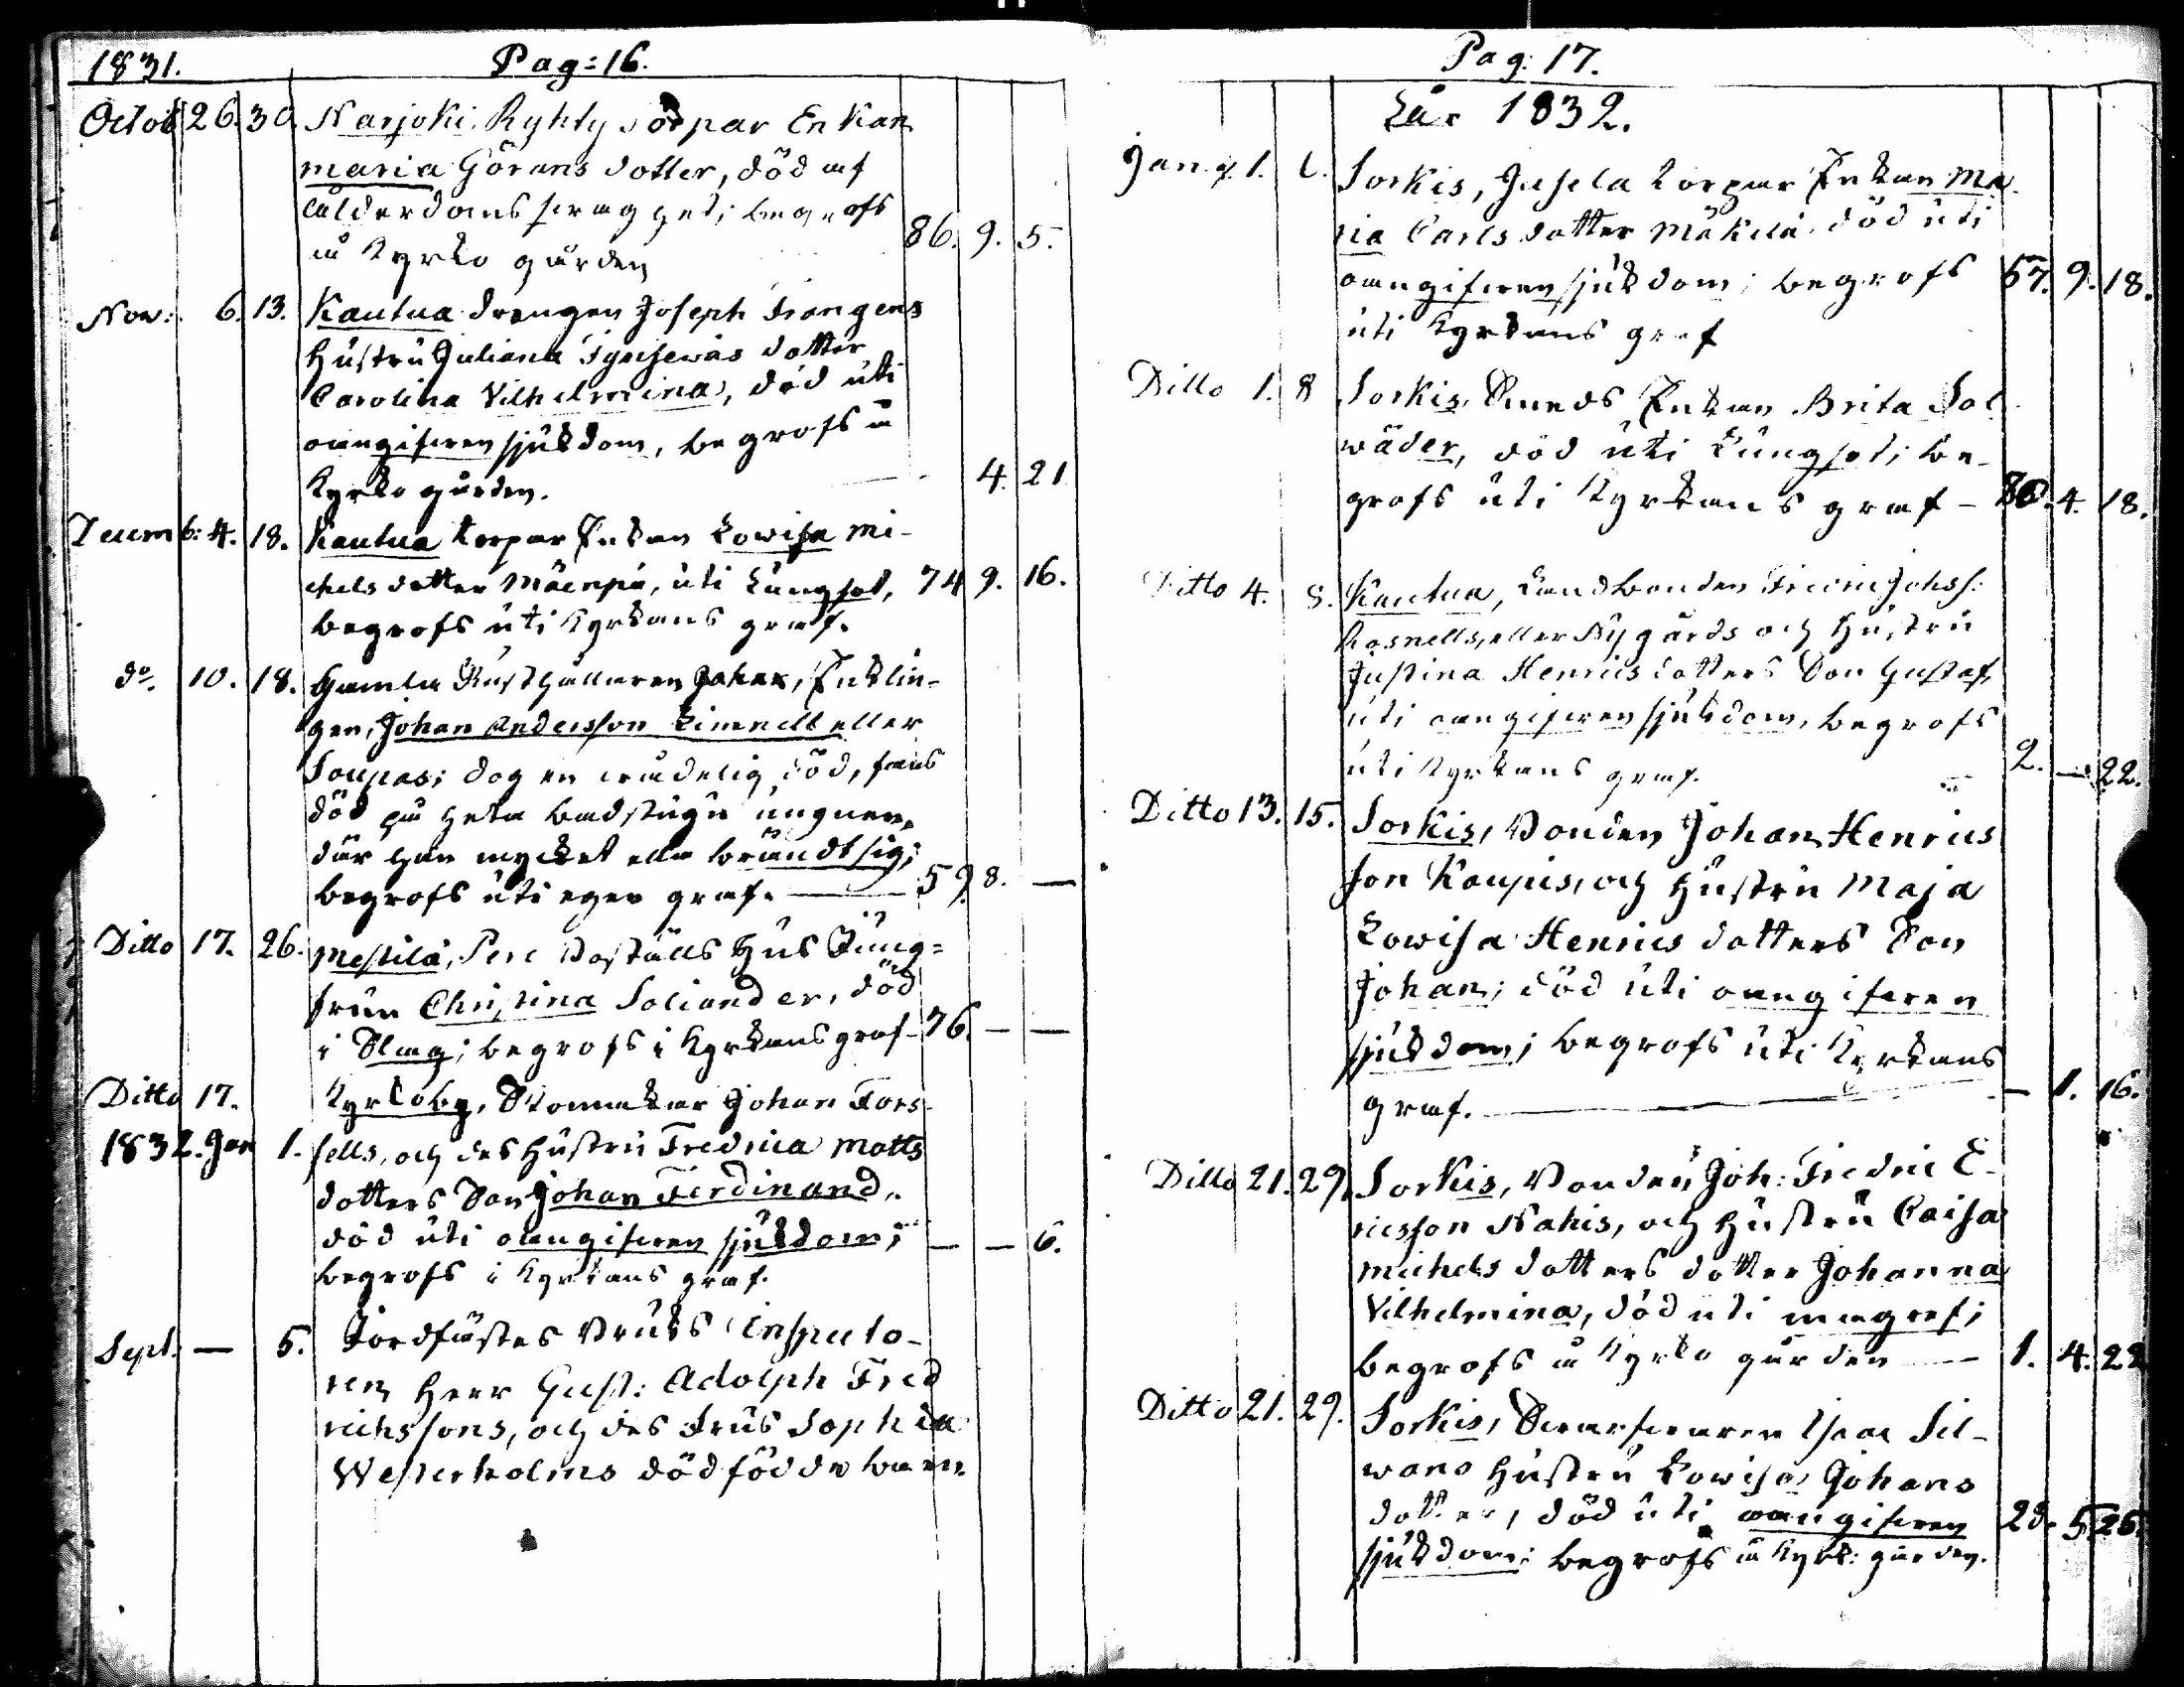 1831. Pag: 16.
Octob 26. 30. Narjoki Ryhty Torpar Enkan
Maria Görans dotter, död af
ålderdoms svaghet; begrofs
å Kyrko gården 86. 9. 5.
Nov: 6. 13. Kautua drengen Joseph Frangens
Hustru Juliana dotter
Carolina Vilhelmina, död uti
oangifven sjukdom, begrofs å
Kyrko gården. 4. 21
Decem 6: 4. 18. Kautua torpar Enkan Lowisa Mi-
chels dotter Mäenpä, uti Lungsot, 74 9. 16.
begrofs uti Kyrkans graf.
do. 10. 18. Gamla Rusthållaren Enklin-
gen, Johan Andersson Limnell eller
Soupas; dog en död, fans
död på heta badstugu ungnen,
där han mycket illa brändt sig;
begrofs uti egen graf. 59. 8. —
Ditto 17. 26. Mestilä, Boställs Hus Jung-
frun Christina Soliander, död
i Slag; begrofs i Kyrkans graf 76. — —
Ditto 17. Kyrkoby, Skomakar Johan Fors-
1832. Jan 1. sells, och des Hustru Fredrica Matts
dotters Son Johan Ferdinand,
död uti oangifven sjukdom; — — 6.
begrofs i Kyrkans graf.
Sept: — 5. Jordfästes Bruks Inspecto-
ren Herr Gust: Adolph Fred
richssons, och des Frus Sophia
Westerholms dödfödda barn
Pag: 17.
År 1832.
Jan. 1. Sorkis, torpar Enkan Ma-
ria Carls dotter Mäkilä, död uti
oangifven sjukdom; begrofs 57. 9. 18.
uti Kyrkans graf
Ditto 1. 8 Sorkis, Smeds Enkan Brita Sol
wäder, död uti Lungsot; be-
grofs uti Kyrkans graf — 80. 4. 18.
Ditto 4. 8. Kautua, Landbonden Johss:
eller Nygårds och Hustru
Justina Henrics dotters Son Gustaf,
uti oangifven sjukdom, begrofs
uti Kyrkans graf. 2. — 22.
Ditto 13. 15. Sorkis, Bonden Johan Henrics
son Kaupis, och Hustru Maja
Lowisa Henrics dotters Son
Johan; död uti oangifven
sjukdom; begrofs uti Kyrkans
graf. — 1. 16.
Ditto 21. 29. Sorkis, Bonden Joh: Fredric E-
ricsson Nahis, och Hustru Caisa
Michels dotters dotter Johanna
Vilhelmina, död uti magref;
begrofs å Kyrko gården — 1. 4. 22
Ditto 21. 29. Sorkis, Isac Sil-
wans Hustru Lowisa Johans
dotter, död uti oangifven 28. 5. 25.
sjukdom; begrofs å Kyrk: gården.